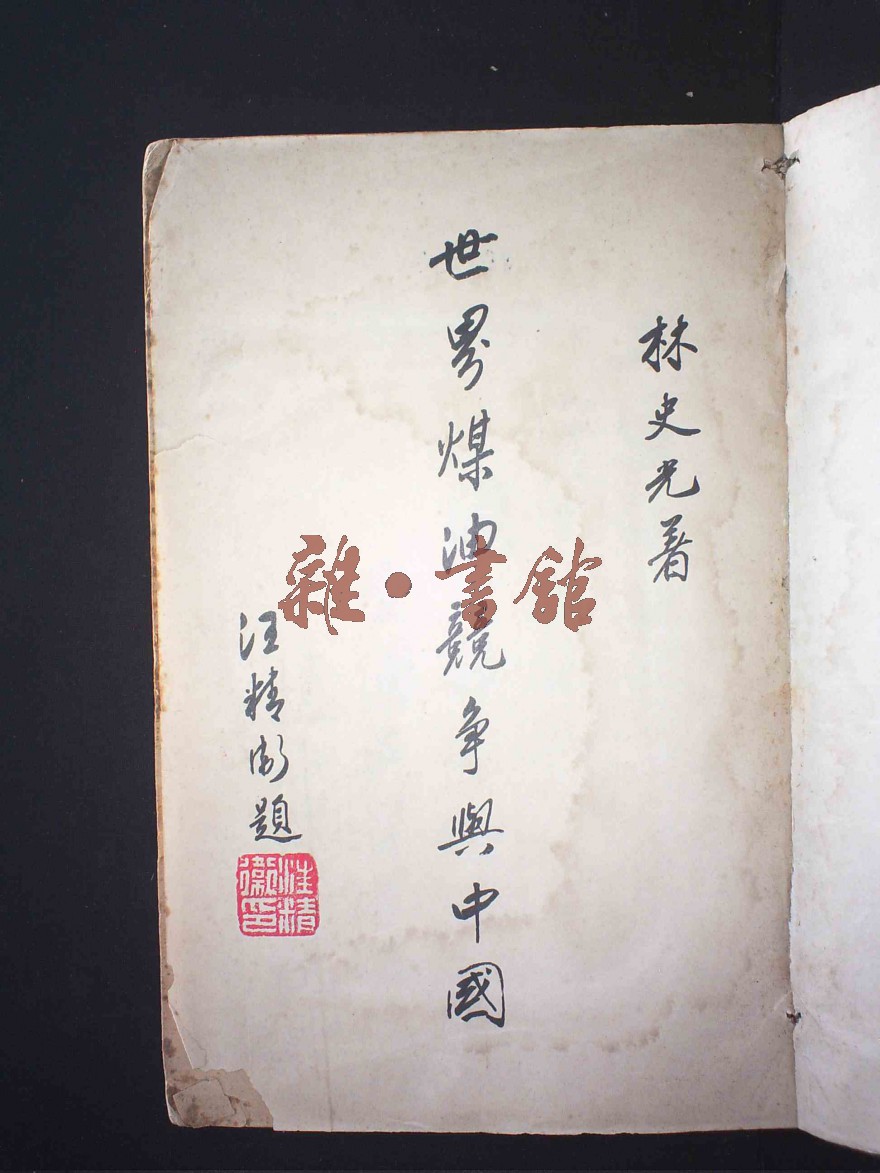 林史光著
世界煤油競爭與中國
汪精衛題
汪精衛印
雜·書館